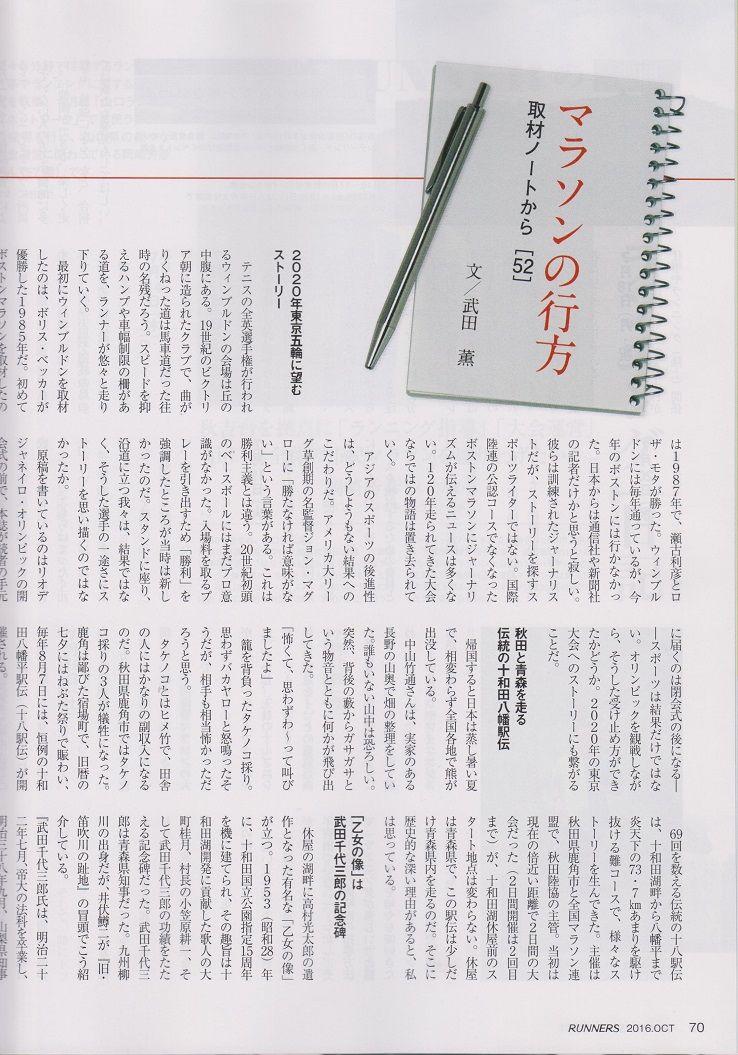 マラソンの行方
取材ノートから［52］
文／武田 薫
2020年東京五輪に望む
ストーリー
テニスの全英選手権が行われ
るウィンブルドンの会場は丘の
中腹にある。19世紀のビクトリ
ア朝に造られたクラブで、曲が
りくねった道は馬車道だった往
時の名残だろう。スピードを抑
えるハンプや車幅制限の柵があ
る道を、ランナーが悠々と走り
下りていく。
最初にウィンブルドンを取材
したのは、ボリス・ベッカーが
優勝した1985年だ。初めて
ボストンマラソンを取材したの
は1987年で、瀬古利彦とロ
ザ・モタが勝った。ウィンブル
ドンには毎年通っているが、今
年のボストンには行かなかっ
た。日本からは通信社や新聞社
の記者だけかと思うと寂しい。
彼らは訓練されたジャーナリス
トだが、ストーリーを探すス
ポーツライターではない。国際
陸連の公認コースでなくなった
ボストンマラソンにジャーナリ
ズムが伝えるニュースは多くな
い。120年走られてきた大会
ならではの物語は置き去られて
いく。
アジアのスポーツの後進性
は、どうしようもない結果への
こだわりだ。アメリカ大リー
グ草創期の名監督ジョン・マグ
ローに「勝たなければ意味がな
い」という言葉がある。これは
勝利主義とは違う。20世紀初頭
のベースボールにはまだプロ意
識がなかった。入場料を取るプ
レーを引き出すため「勝利」を
強調したところが当時は新し
かったのだ。スタンドに座り、
沿道に立つ我々は、結果ではな
く、そうした選手の一途さにス
トーリーを思い描くのではな
かったか。
原稿を書いているのはリオデ
ジャネイロ・オリンピックの開
会式の前で、本誌が読者の手元
に届くのは閉会式の後になる―
―スポーツは結果だけではな
い。オリンピックを観戦しなが
ら、そうした受け止め方ができ
たかどうか。2020年の東京
大会へのストーリーにも繋がる
ことだ。
秋田と青森を走る
伝統の十和田八幡駅伝
帰国すると日本は蒸し暑い夏
で、相変わらず全国各地で熊が
出没している。
中山竹通さんは、実家のある
長野の山奥で畑の整理をしてい
た。誰もいない山中は恐ろしい。
突然、背後の藪からガサガサと
いう物音とともに何かが飛び出
してきた。
「怖くて、思わずわ〜って叫び
ましたよ」
籠を背負ったタケノコ採り。
思わずバカヤローと怒鳴ったそ
うだが、相手も相当怖かっただ
ろうと思う。
タケノコとはヒメ竹で、田舎
の人にはかなりの副収入になる
のだ。秋田県鹿角市ではタケノ
コ採りの3人が犠牲になった。
鹿角は鄙びた宿場町で、旧暦の
七夕にはねぶた祭りで賑わい、
毎年8月7日には、恒例の十和
田八幡平駅伝（十八駅伝）が開
催される。
69回を数える伝統の十八駅伝
は、十和田湖畔から八幡平まで
炎天下の73・7㎞あまりを駆け
抜ける難コースで、様々なス
トーリーを生んできた。主催は
秋田県鹿角市と全国マラソン連
盟で、秋田陸協の主管。当初は
現在の倍近い距離で2日間の大
会だった（2日間開催は2回目
まで）が、十和田湖休屋前のス
タート地点は変わらない。休屋
は青森県で、この駅伝は少しだ
け青森県内を走るのだ。そこに
歴史的な深い理由があると、私
は思っている。
「乙女の像」は
武田千代三郎の記念碑
休屋の湖畔に高村光太郎の遺
作となった有名な「乙女の像」
が立つ。1953（昭和28）年
に、十和田国立公園指定15周年
を機に建てられ、その趣旨は十
和田湖開発に貢献した歌人の大
町桂月、村長の小笠原耕一、そ
して武田千代三郎の功績をたた
える記念碑だった。武田千代三
郎は青森県知事だった。九州柳
川の出身だが、井伏鱒二が『旧・
笛吹川の趾地』の冒頭でこう紹
介している。
『武田千代三郎氏は、明治二十
二年七月、帝大の法科を卒業し、
明治三十八年九月、山梨県知事
RUNNERS 2016.OCT 70